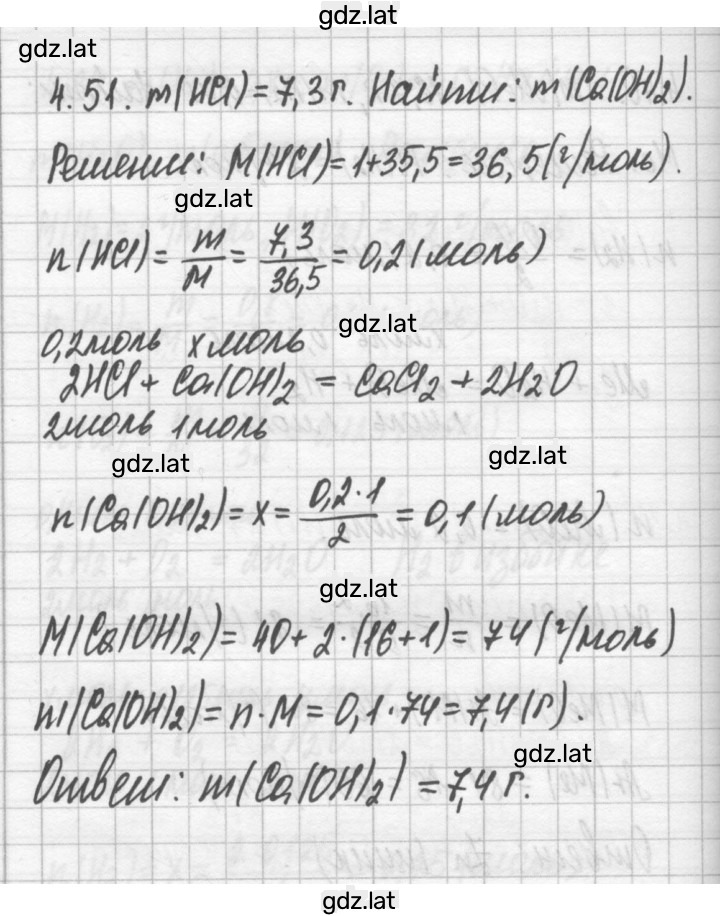 gdz.lat
gdz.lat
4.51. m(HCl) = 7,3 г. Найти: m(Ca(OH)₂).
Решение: M(HCl) = 1+35,5 = 36,5 (г/моль).
gdz.lat
n(HCl) = m/M = 7,3/36,5 = 0,2 (моль)
gdz.lat
0,2 моль x моль
2HCl + Ca(OH)₂ = CaCl₂ + 2H₂O
2 моль 1 моль
gdz.lat
gdz.lat
n(Ca(OH)₂) = x = 0,2·1/2 = 0,1 (моль)
gdz.lat
M(Ca(OH)₂) = 40 + 2·(16+1) = 74 (г/моль)
m(Ca(OH)₂) = n·M = 0,1·74 = 7,4 (г).
gdz.lat
Ответ: m(Ca(OH)₂) = 7,4 г.
gdz.lat